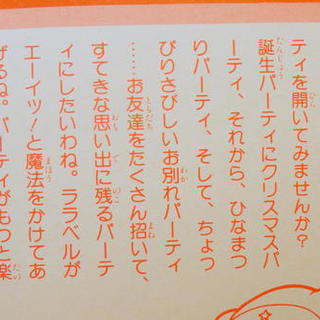 ティを開いてみませんか？
誕生パーティにクリスマスパ
ーティ、それから、ひなまつ
りパーティ、そして、ちょっ
ぴりさびしいお別れパーティ
……お友達をたくさん招いて、
すてきな思い出に残るパーテ
ィにしたいわね。ララベルが
エーイッ！と魔法をかけてあ
げるね。パーティがもっと楽